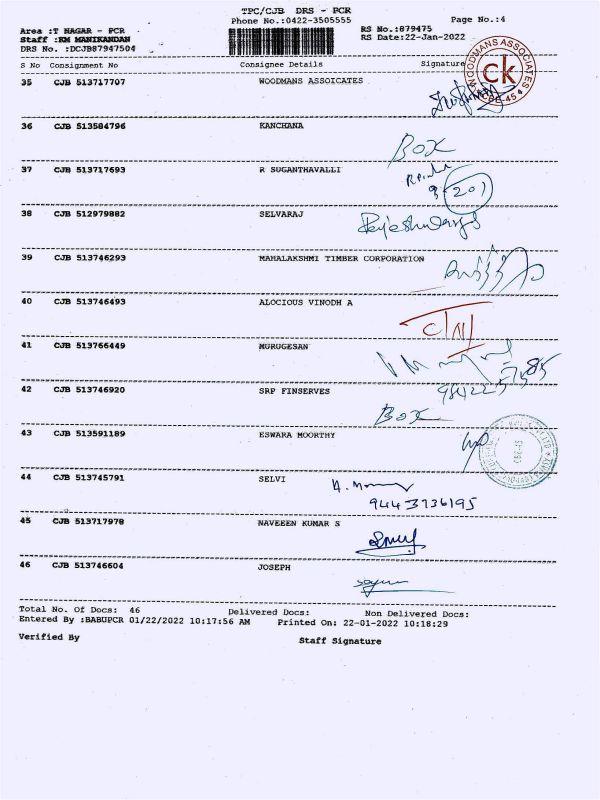 TPC/CJB DRS - PCR
Phone No.:0422-3505555
Page No.:4
Area :T NAGAR - PCR
Staff :KM MANIKANDAN
DRS No. :DCJB87947504
RS No.:879475
RS Date:22-Jan-2022
S No Consignment No Consignee Details Signature
35 CJB 513717707 WOODMANS ASSOICATES
WOODMANS ASSOCIATES
ck
CBE-45
36 CJB 513584796 KANCHANA
BOX
37 CJB 513717693 R SUGANTHAVALLI
201
38 CJB 512979882 SELVARAJ
39 CJB 513746293 MAHALAKSHMI TIMBER CORPORATION
40 CJB 513746493 ALOCIOUS VINODH A
41 CJB 513766449 MURUGESAN
42 CJB 513746920 SRP FINSERVES
BOX
43 CJB 513591189 ESWARA MOORTHY
44 CJB 513745791 SELVI
9443736195
45 CJB 513717978 NAVEEEN KUMAR S
46 CJB 513746604 JOSEPH
Total No. Of Docs: 46 Delivered Docs: Non Delivered Docs:
Entered By :BABUPCR 01/22/2022 10:17:56 AM Printed On: 22-01-2022 10:18:29
Verified By Staff Signature